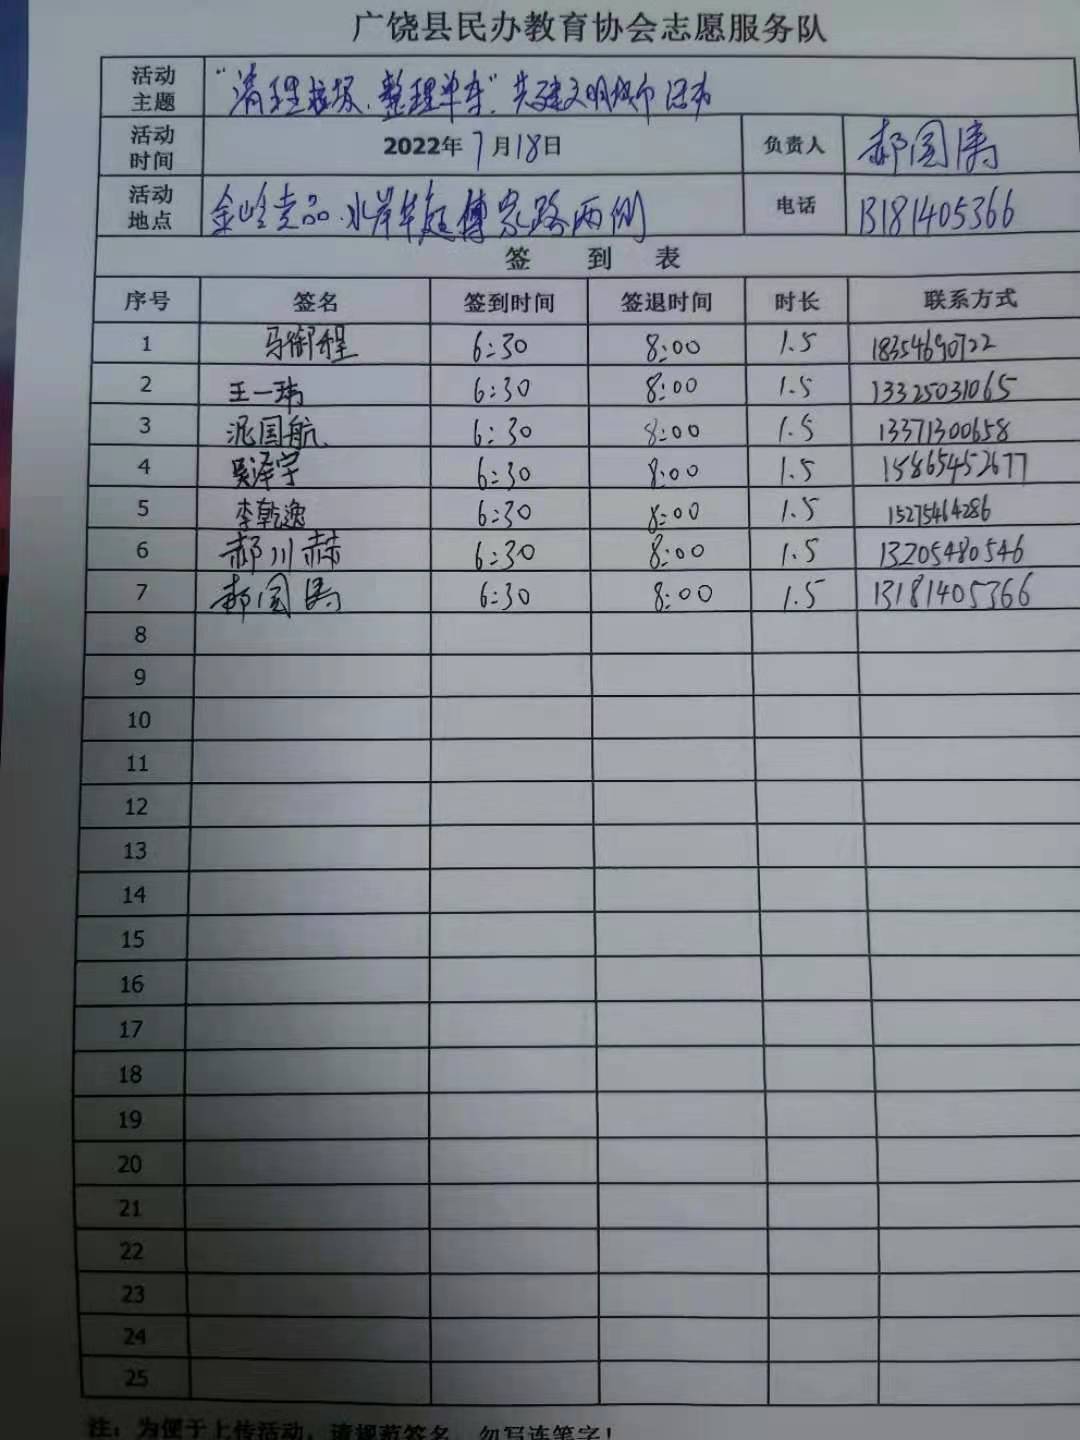 广饶县民办教育协会志愿服务队
活动主题 "清理垃圾、整理单车"共建文明城市
活动时间 2022年7月18日 负责人 郝国涛
活动地点 金岭 品·水岸华庭傅家路两侧 电话 13181405366
签 到 表
序号 签名 签到时间 签退时间 时长 联系方式
1 马衔程 6:30 8:00 1.5 18354690722
2 王一玮 6:30 8:00 1.5 13325031065
3 泥国航 6:30 8:00 1.5 13371300658
4 吴泽宇 6:30 8:00 1.5 15865452677
5 李乾逸 6:30 8:00 1.5 15275464286
6 郝川赫 6:30 8:00 1.5 13205480546
7 郝国涛 6:30 8:00 1.5 13181405366
8
9
10
11
12
13
14
15
16
17
18
19
20
21
22
23
24
25
注：为便于上传活动，请规范签名，勿写连笔字！